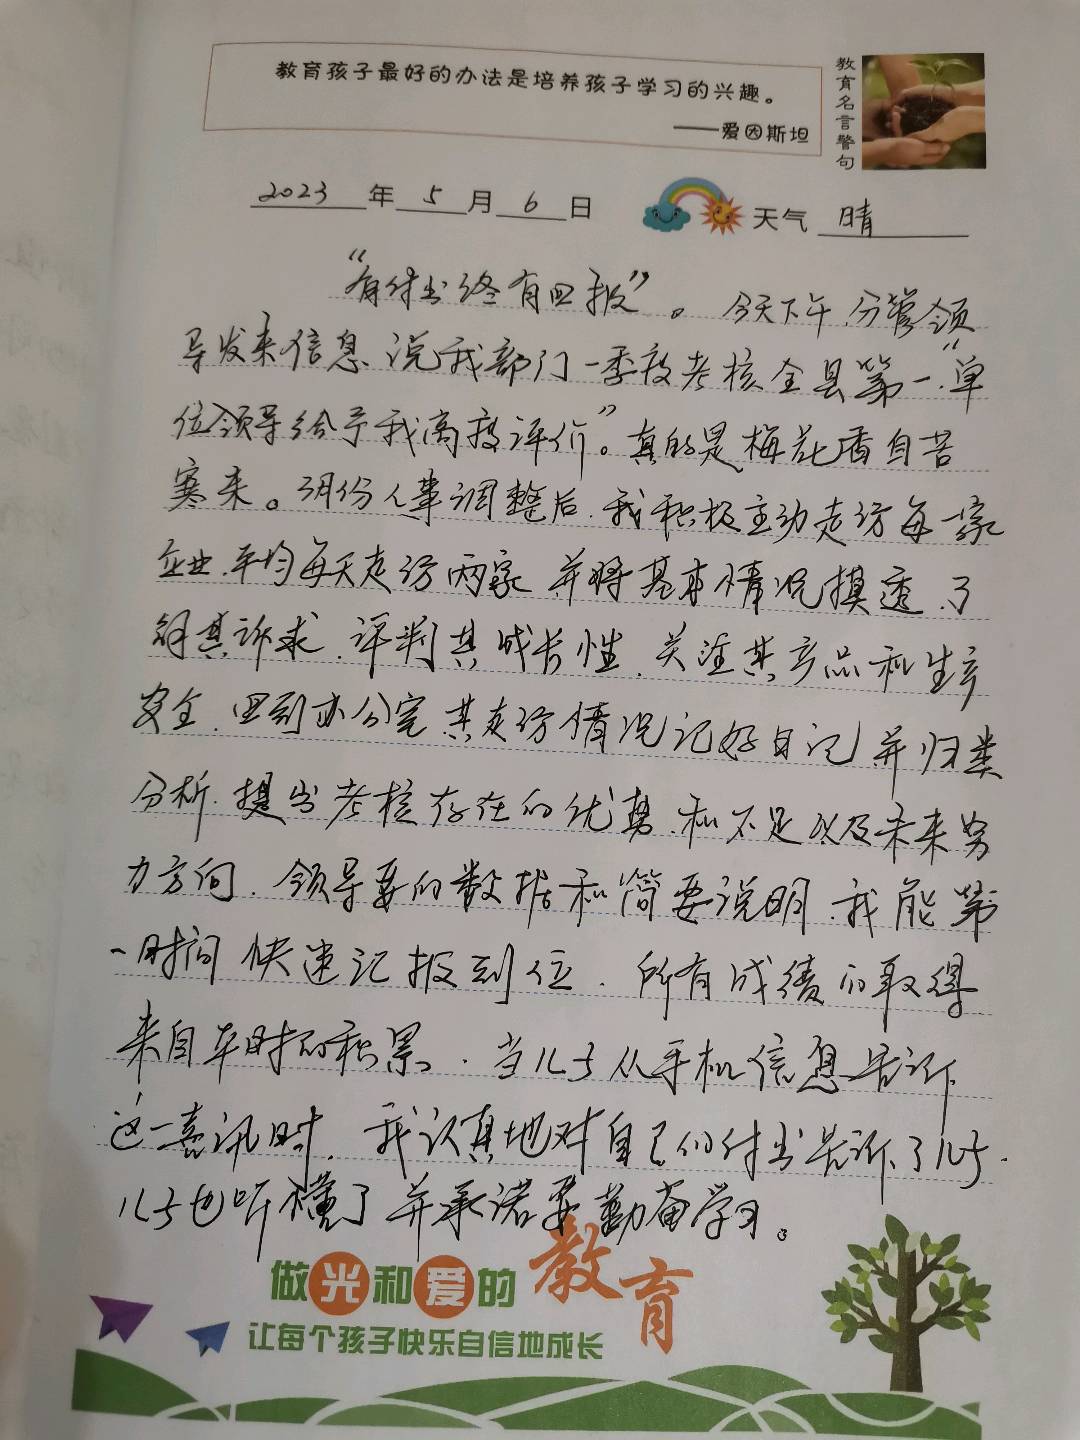 教育孩子最好的办法是培养孩子学习的兴趣。
——爱因斯坦
教育名言警句
2023年5月6日 天气 晴
“有付出终有回报”。今天下午,分管领
导发来信息,说我部门一季度考核全县第一,“单
位领导给予我高度评价”。真的是梅花香自苦
寒来。3月份人事调整后,我积极主动走访每一家
企业,平均每天走访两家,并将基本情况摸透,了
解其诉求,评判其成长性,关注其产品和生产
安全,回到办公室,其走访情况记好日记,并归类
分析,提出考核存在的优势,和不足以及未来努
力方向,领导要的数据和简要说明,我能第
一时间快速汇报到位,所有成绩的取得
来自平时的积累。当儿子从手机信息告诉
这一喜讯时,我认真地对自己的付出告诉了儿子,
儿子也听懂了并承诺要勤奋学习。
做光和爱的教育
让每个孩子快乐自信地成长